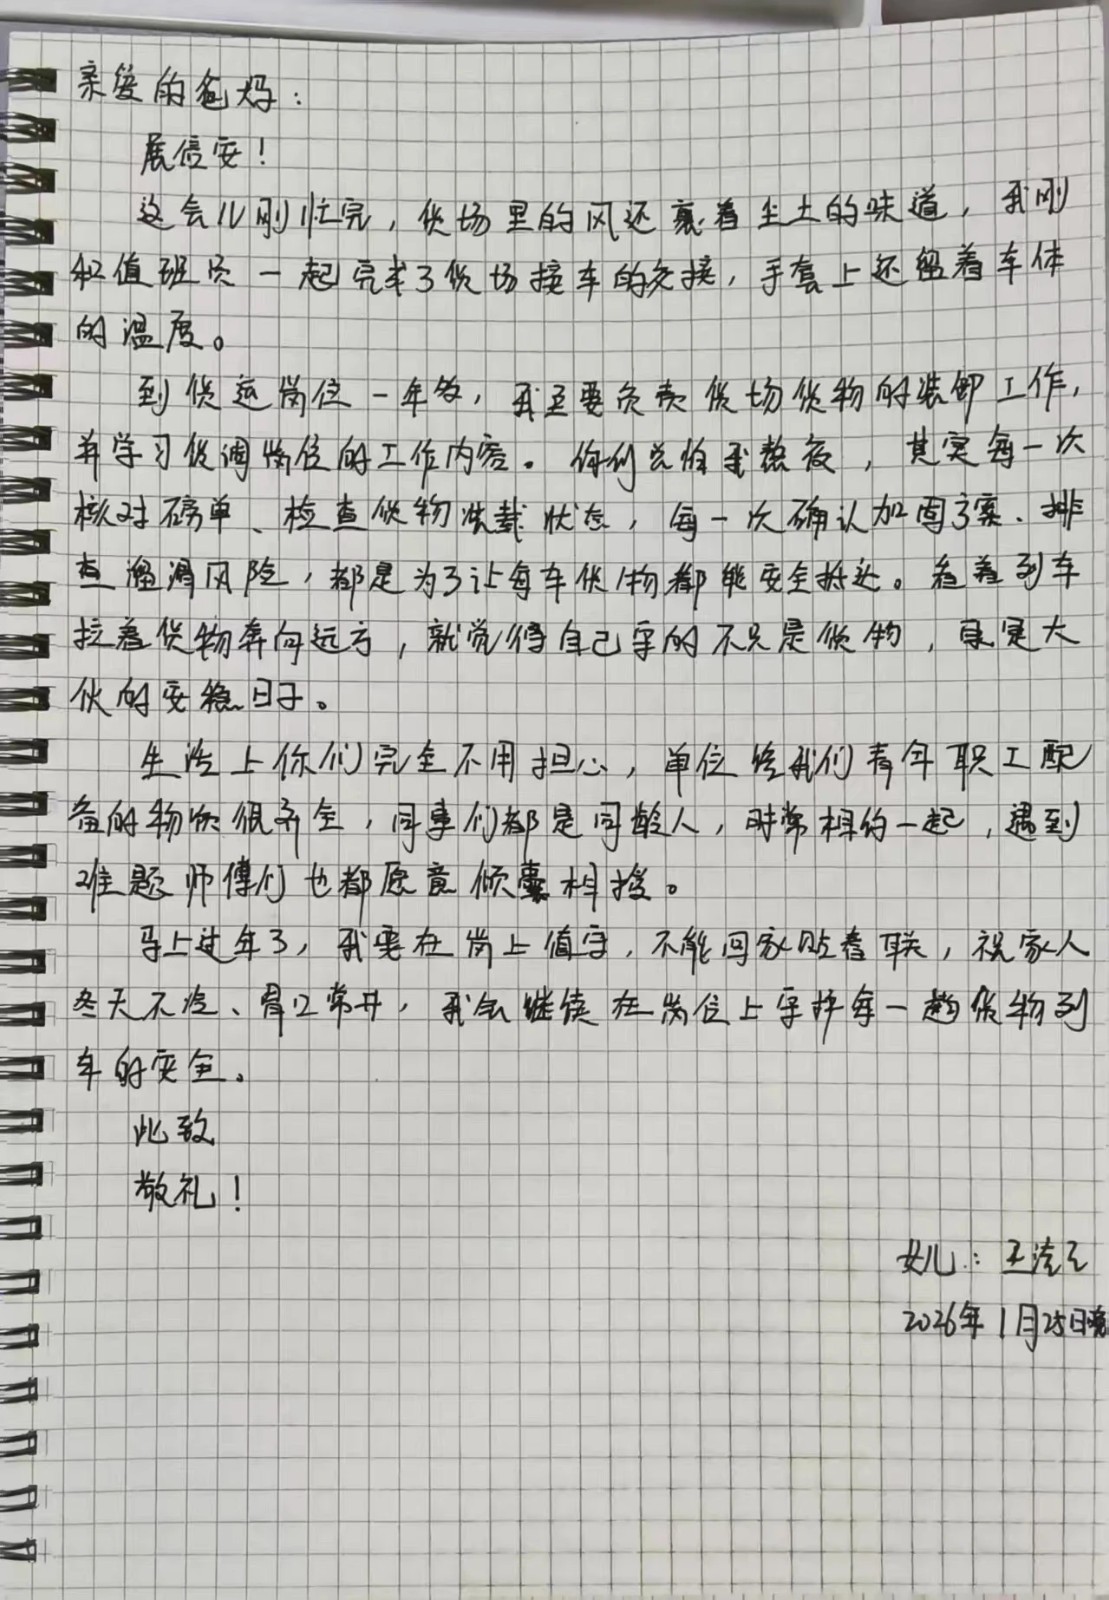 亲爱的爸妈：
展信安！
这会儿刚忙完，货场里的风还裹着尘土的味道，我刚
和值班员一起完成了货场接车的交接，手套上还留着车体
的温度。
到货运岗位一年多，我主要负责货场货物的装卸工作，
并学习货调岗位的工作内容。你们总怕我熬夜，其实每一次
核对磅单、检查货物装载状态，每一次确认加固方案、排
查溜滑风险，都是为了让每车货物都能安全抵达。看着列车
拉着货物奔向远方，就觉得自己守的不只是货物，更是大
伙的安稳日子。
生活上你们完全不用担心，单位给我们青年职工配
备的物资很齐全，同事们都是同龄人，时常相约一起，遇到
难题师傅们也都愿意倾囊相授。
马上过年了，我要在岗上值守，不能回家贴春联，祝家人
冬天不冷、胃口常开，我会继续在岗位上守护每一趟货物列
车的安全。
此致
敬礼！
女儿：王
2026年1月25日晚